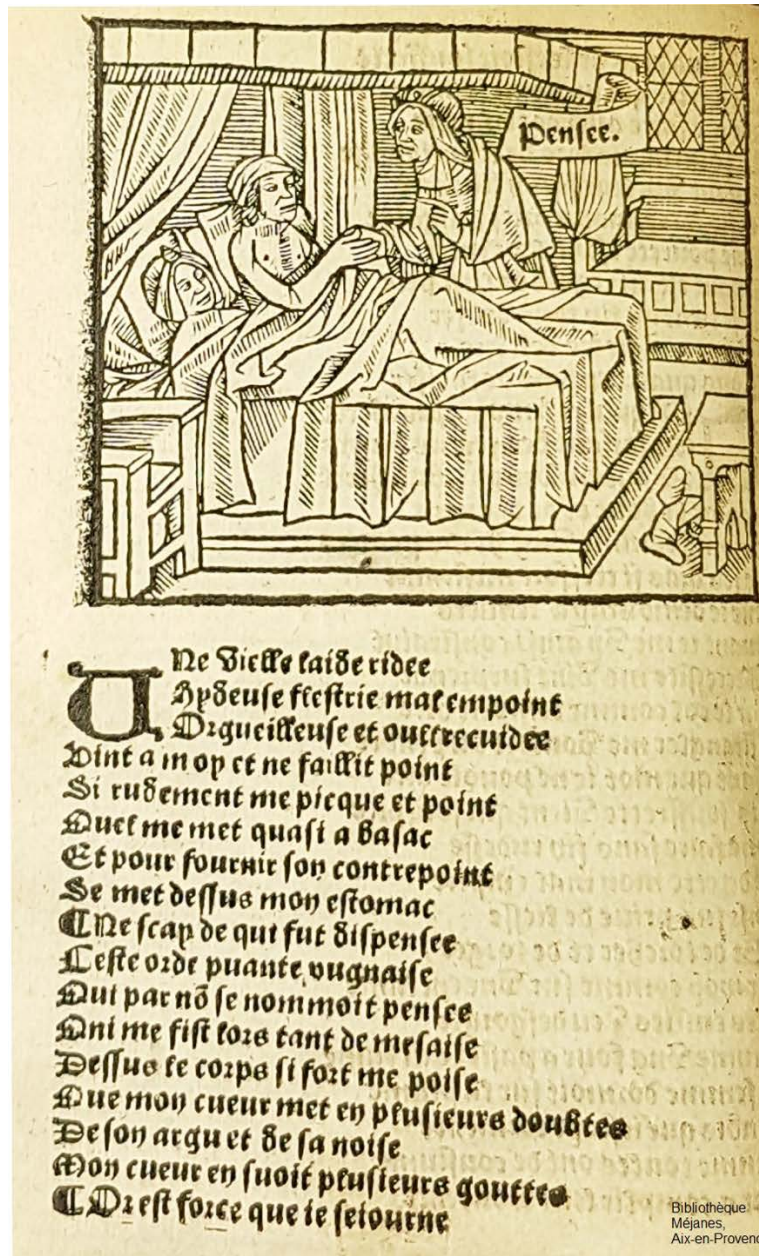 Pensee.
UNe vielle laide ridee
Hydeuse flestrie mal empoint
Orgueilleuse et oultrecuidee
Vint a moy et ne faillit point
Si rudement me picque et point
Quel me met quasi a basac
Et pour fournir son contrepoint
Se met dessus mon estomac
¶Ne scay de qui fut dispensee
Ceste orde puante pugnaise
Qui par nõ se nommoit pensee
Qui me fist lors tant de mesaise
Dessus le corps si fort me poise
Que mon cueur met en plusieurs doubtes
De son argu et de sa noise
Mon cueur en suoit plusieurs gouttes
¶Or est force que ie seiourne
Bibliothèque
Méjanes,